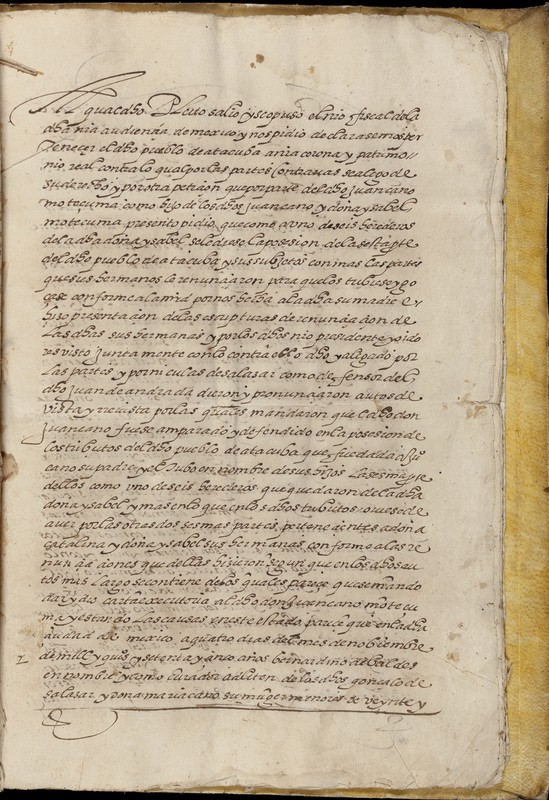 Al qual dho Pleito salio y se opuso el nro fiscal de la
dha nra audiençia de mexico y nos pidio declarasemos per
teneçer el dho pueblo de atacuba a nra corona y patrimo
nio real contra lo qual por las partes contrarias se alego de
su derecho y por otra petiçion que por parte del dho juan cano
motecuma como hijo de los dhos juan cano y doña ysabel
motecuma presento pidio que como a vno de seis herederos
de la dha doña ysabel se le diese la posesion de la sesta pte
del dho pueblo de atacuba y sus subjetos con mas las partes
que sus hermanas le renunçiaron para que los tubiese y go
çase conforme a la mrd por nos hecha a la dha su madre e y
hizo presentaçion de las escripturas de renunçiaçion de
las dhas sus hermanas y por los dhos nro presidente y oido
res visto juntamente con lo contra ello dho y alegado por
las partes y por niculas de salasar como defensor del
dho juan de andrada dieron y pronunçiaron autos de
vista y revista por los quales mandaron que el dho don
juan cano fuese amparado y defendido en la posesion de
los tributos del dho pueblo de atacuba que fue dada a Ju
cano su padre y el tubo en nombre de sus hijos la sesma pte
dellos como vno de seis herederos que quedaron de la dha
doña ysabel y mas en lo que en los dhos tributos oviese de
aver por las otras dos sesmas partes perteneçientes a doña
catalina y doña ysabel sus hermanas conforme a las re
nunçiaçiones que dellas hiçieron segun que en los dhos au
tos mas largo se contiene de los quales pareçe que se mando
dar y dio carta executoria al dho don juan cano motecu
ma y estando las causas en este estado pareçe que en la dha
çiudad de mexico a quatro dias del mes de nobiembre
de mill y quis y setenta y çinco años bernardino de baldes
en nombre y como curador adliten de los dhos gonçalo de
salasar y dona maria cano su muger menores de veynte y